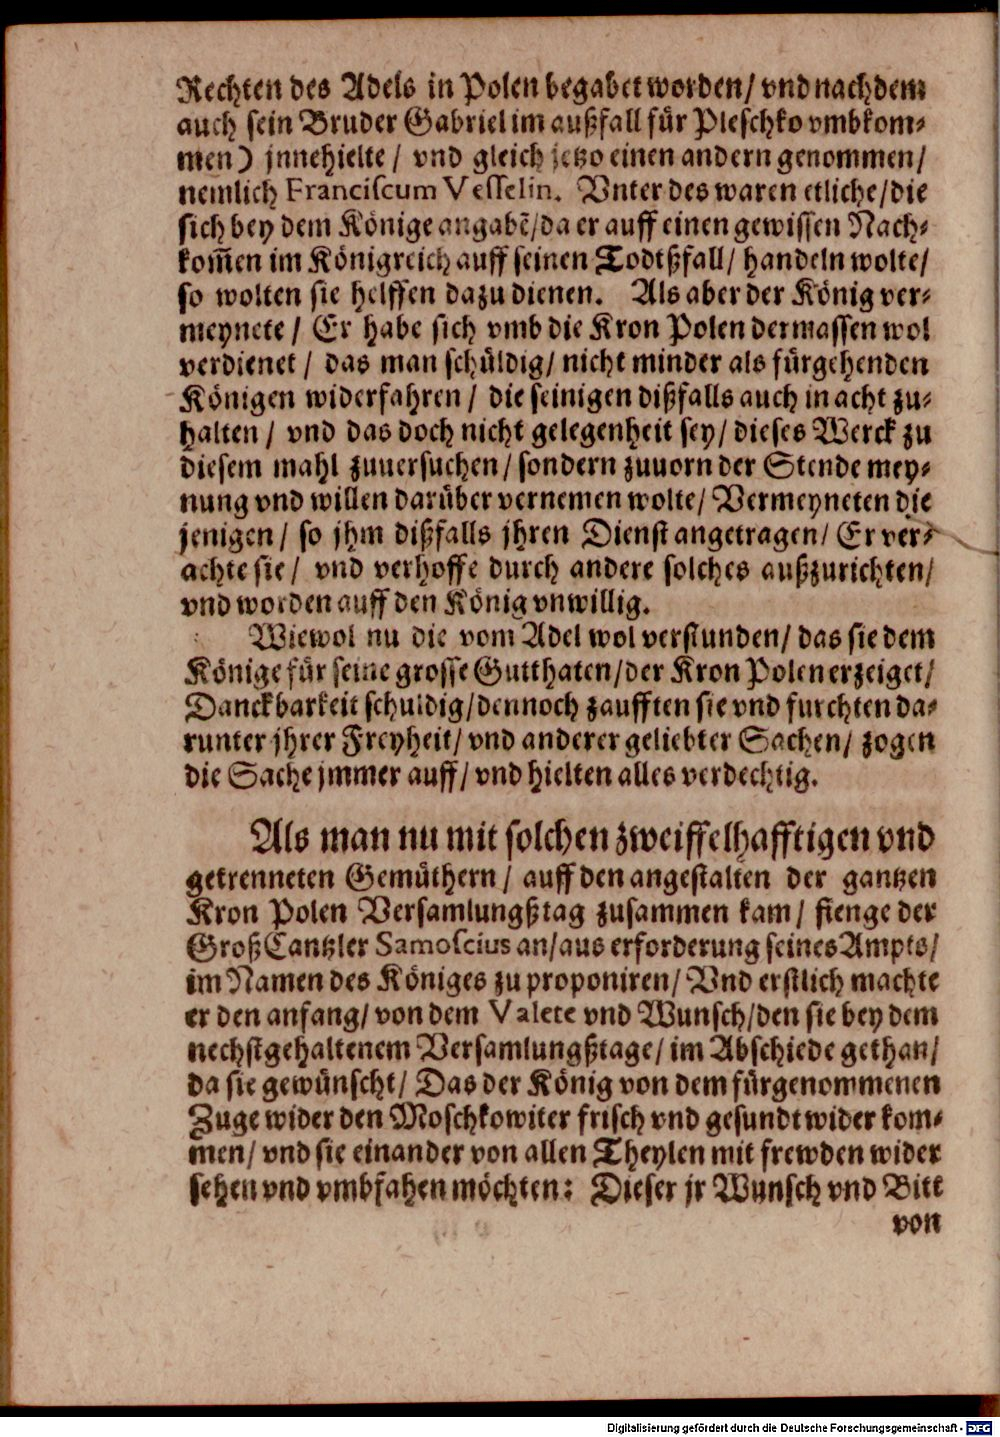 Rechten des Adels in Polen begabet worden/ vnd nachdem
auch sein Bruder Gabriel im außfall für Pleschko vmbkom⸗
men) jnnehielte/ vnd gleich jetzo einen andern genommen/
nemlich Franciscum Vesselin. Vnter des waren etliche/die
sich bey dem Könige angabē/da er auff einen gewissen Nach⸗
kom̄en im Königreich auff seinen Todtßfall/ handeln wolte/
so wolten sie helffen dazu dienen. Als aber der König ver⸗
meynete/ Er habe sich vmb die Kron Polen dermassen wol
verdienet/ das man schüldig/ nicht minder als fürgehenden
Königen widerfahren/ die seinigen dißfalls auch in acht zu⸗
halten/ vnd das doch nicht gelegenheit sey/ dieses Werck zu
diesem mahl zuuersuchen/ sondern zuuorn der Stende mey⸗
nung vnd willen darüber vernemen wolte/ Vermeyneten die
jenigen/ so jhm dißfalls jhren Dienst angetragen/ Er ver⸗
achte sie/ vnd verhoffe durch andere solches außzurichten/
vnd worden auff den König vnwillig.
Wiewol nu die vom Adel wol verstunden/ das sie dem
Könige für seine grosse Gutthaten/der Kron Polen erzeiget/
Danckbarkeit schuldig/dennoch zaufften sie vnd furchten da⸗
runter jhrer Freyheit/ vnd anderer geliebter Sachen/ zogen
die Sache jmmer auff/ vnd hielten alles verdechtig.
Als man nu mit solchen zweiffelhafftigen vnd
getrenneten Gemüthern/ auff den angestalten der gantzen
Kron Polen Versamlungßtag zusammen kam/ fienge der
GroßCantzler Samoscius an/aus erforderung seines Ampts/
im Namen des Königes zu proponiren/ Vnd erstlich machte
er den anfang/ von dem Valete vnd Wunsch/den sie bey dem
nechstgehaltenem Versamlungßtage/ im Abschiede gethan/
da sie gewünscht/ Das der König von dem fürgenommenen
Zuge wider den Moschkowiter frisch vnd gesundt wider kom⸗
men/ vnd sie einander von allen Theylen mit frewden wider
sehen vnd vmbfahen möchten: Dieser jr Wunsch vnd Bitt
von
Digitalisierung gefördert durch die Deutsche Forschungsgemeinschaft - DFG